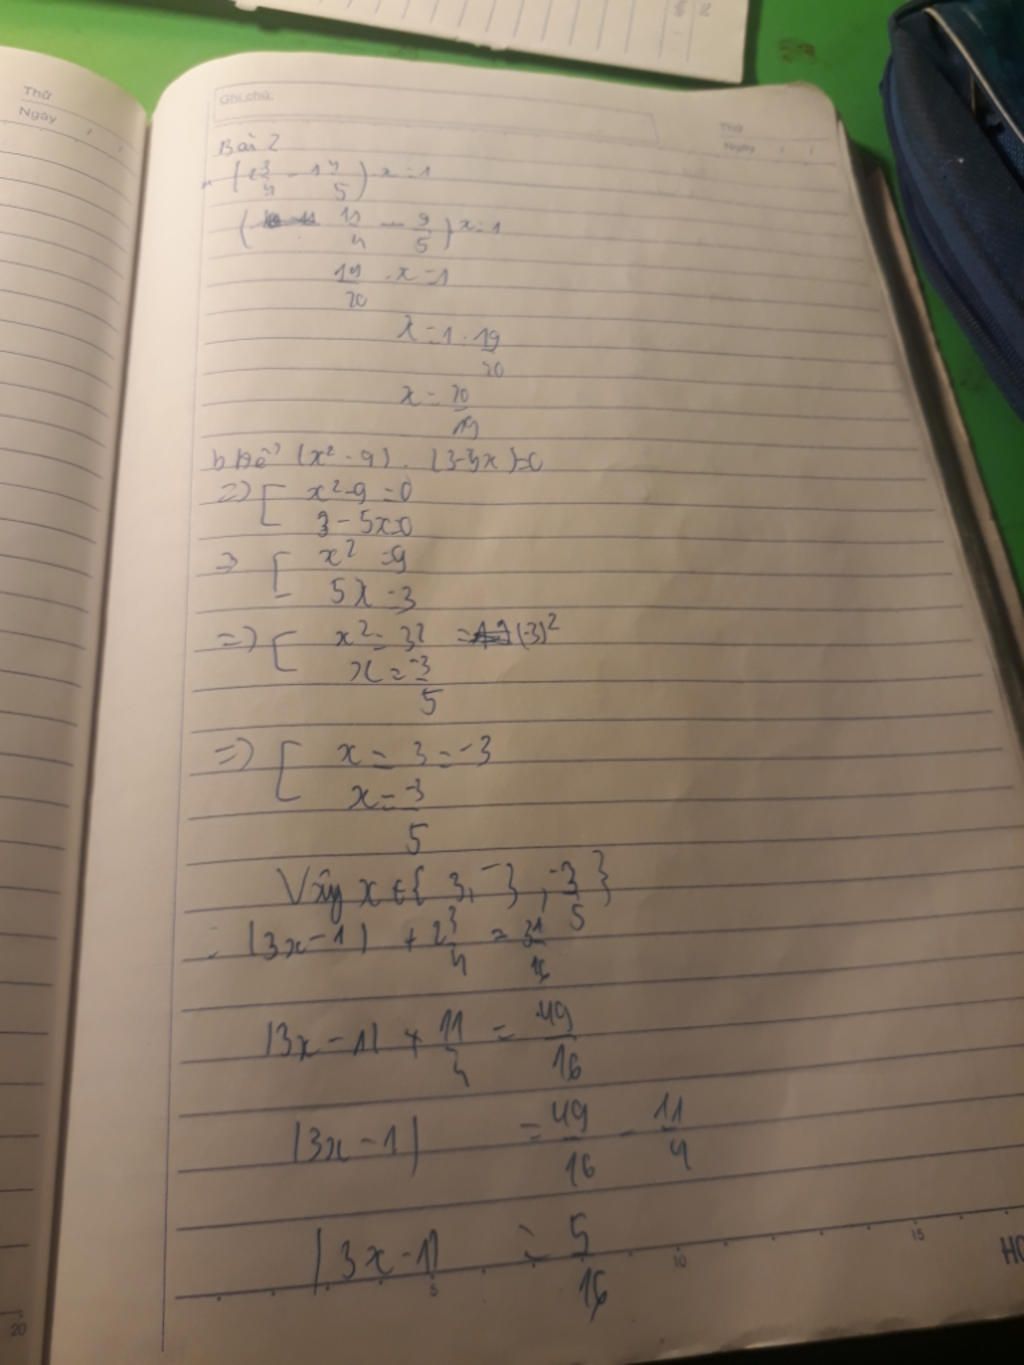 Thứ
Ngày
Ghi chú:
Thứ
Ngày
Bài 2
(2 3/4 - 1 4/5) x = 1
( 11/4 - 9/5 ) x = 1
19/20 . x = 1
x = 1 : 19/20
x = 20/19
b Để (x² - 9) . (3-3x)=0
=> [ x²-9 = 0
3 - 5x=0
=> [ x² = 9
5x = 3
=> [ x² = 3² = (-3)²
x = -3/5
=> [ x = 3 = -3
x = -3/5
Vậy x ∈ { 3, -3, -3/5 }
|3x-1| + 2 3/4 = 3 1/16
|3x - 1| + 11/4 = 49/16
|3x - 1| = 49/16 - 11/4
|3x - 1| = 5/16
5 10 15
HO
20